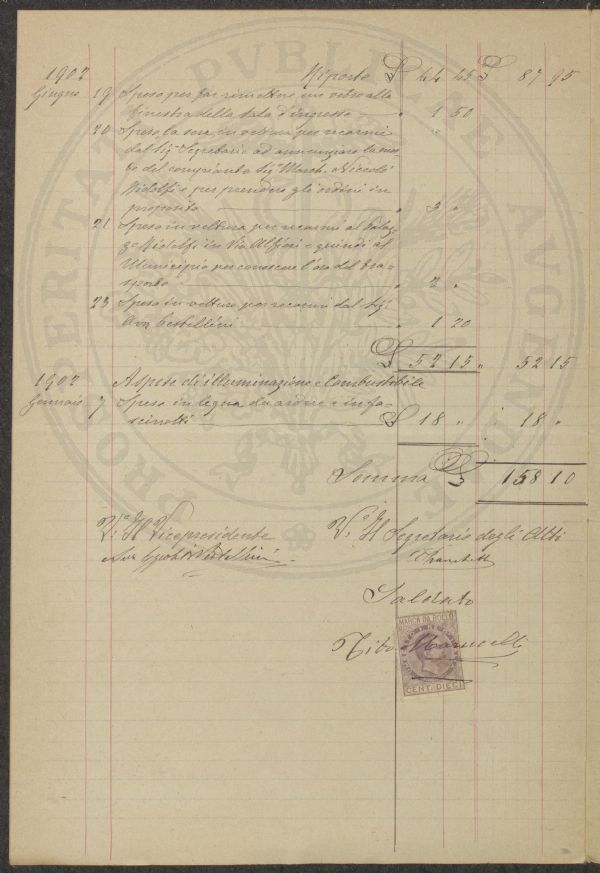 1902 Riporto £ 44 45 £ 87 95
Giugno 19 Spese per far rimettere un vetro alla
finestra della sala d'ingresso " 1 50
20 Spese la sera in vettura per recarmi
dal Sig. Segretario ad annunziare la mor-
te del compianto Sig. March. Niccolò
Ridolfi e per prendere gli ordini in
proposito " 3 "
21 Spese in vettura per recarmi al Palaz-
zo Ridolfi in Via Alfieri e quindi al
Municipio per conoscere l'ora del tra-
sporto " 2 "
23 Spese in vettura per recarmi dal Sig.
Avv. Cestellini " 1 20
£ 52 15 " 52 15
1902 A spese di illuminazione e Combustibile
Gennaio 7 Spese in legna da ardere e in fa-
scinotti £ 18 " " 18 "
Somma £ 158 10
V.° Il Vicepresidente V.° Il Segretario degli Atti
Saldato
Tito
MARCA DA BOLLO
CENT. DIECI